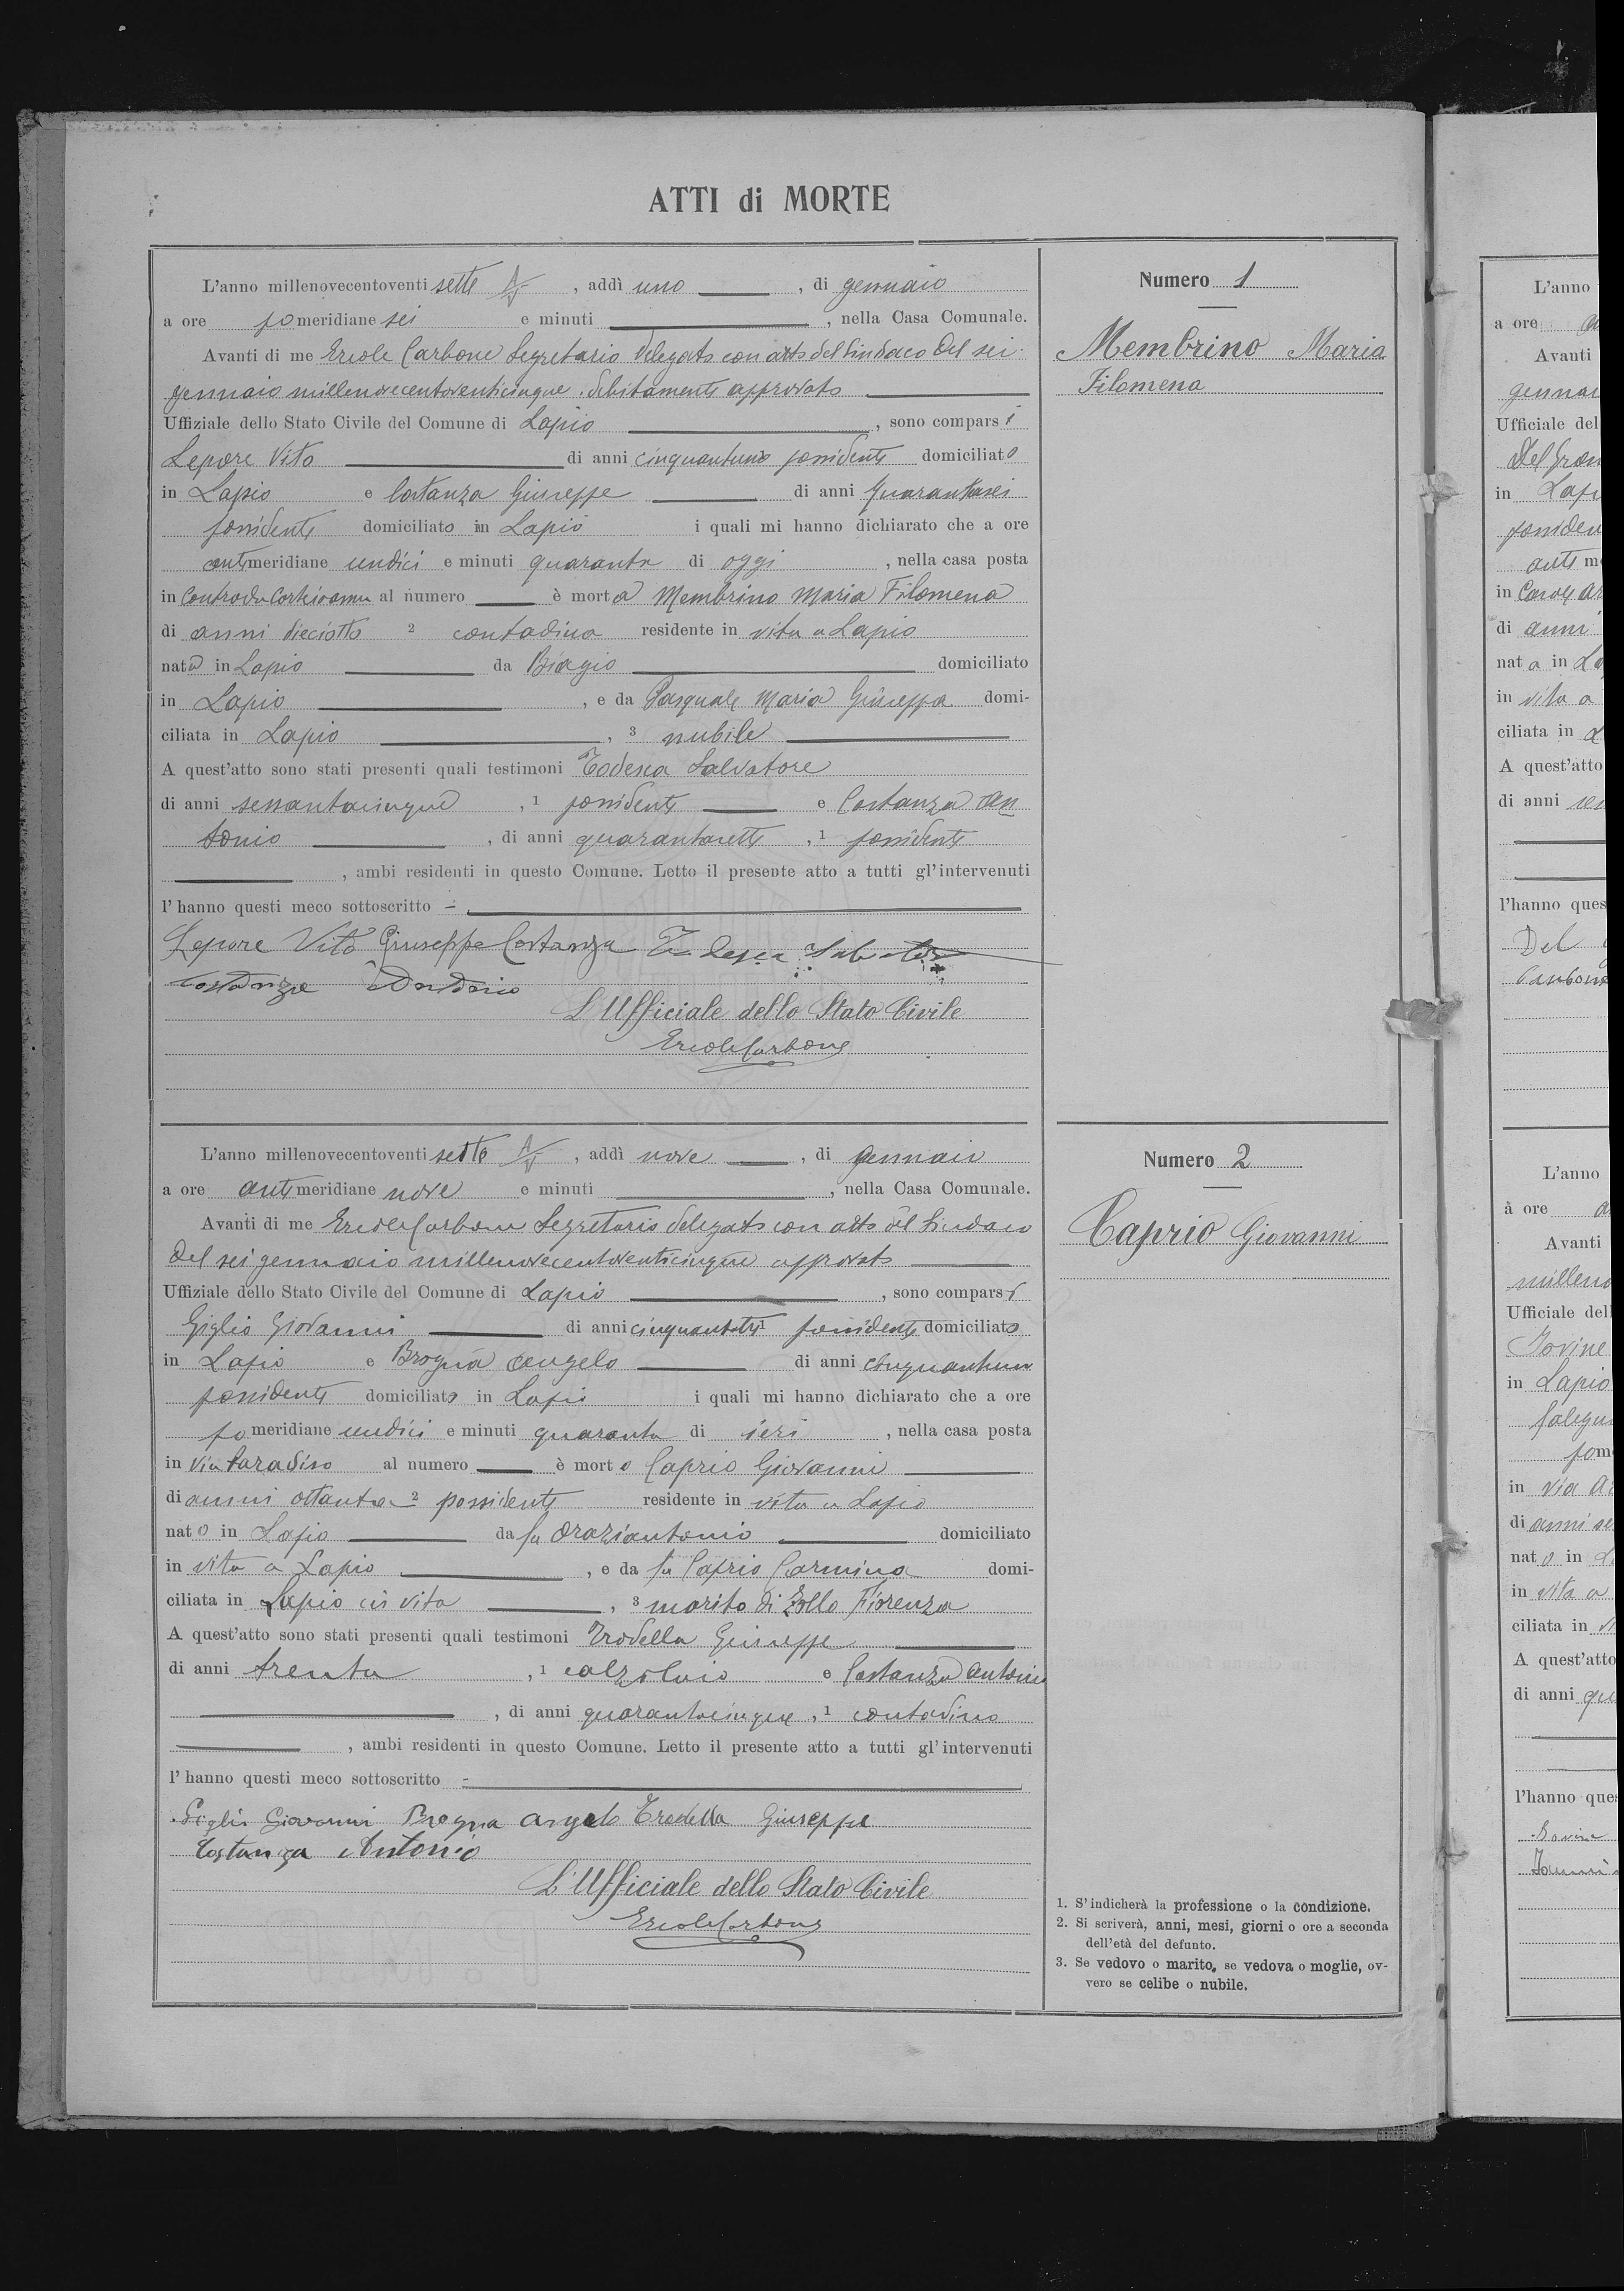 ATTI di MORTE
L'anno millenovecentoventi sette, addì uno, di gennaio
a ore pomeridiane sei e minuti, nella Casa Comunale.
Avanti di me Ercole Carbone Segretario delegato con atto del Sindaco del sei
gennaio millenovecentoventicinque debitamente approvato
Uffiziale dello Stato Civile del Comune di Lapio, sono comparsi
Lepore Vito di anni cinquantuno possidente domiciliato
in Lapio e Costanza Giuseppe di anni quarantasei
possidente domiciliato in Lapio i quali mi hanno dichiarato che a ore
antimeridiane undici e minuti quaranta di oggi, nella casa posta
in Contrada al numero è morta Membrino Maria Filomena
di anni dieciotto 2 contadina residente in vita a Lapio
nata in Lapio da Biagio domiciliato
in Lapio, e da Pasquale Maria Giuseppa domi-
ciliata in Lapio, 3 nubile
A quest'atto sono stati presenti quali testimoni Todesca Salvatore
di anni sessantacinque, 1 possidente e Costanza An
tonio, di anni quarantasette, 1 possidente
, ambi residenti in questo Comune. Letto il presente atto a tutti gl'intervenuti
l'hanno questi meco sottoscritto -
Lepore Vito Giuseppe Costanza Todesca Salvatore
Costanza Antonio
L'Ufficiale dello Stato Civile
Ercole Carbone
Numero 1
Membrino Maria
Filomena
L'anno millenovecentoventi sette, addì nove, di gennaio
a ore antimeridiane nove e minuti, nella Casa Comunale.
Avanti di me Ercole Carbone Segretario delegato con atto del Sindaco
del sei gennaio millenovecentoventicinque approvato
Uffiziale dello Stato Civile del Comune di Lapio, sono comparsi
Giglio Giovanni di anni cinquantatre 1 possidente domiciliato
in Lapio e Brogna Angelo di anni cinquantuno
possidente domiciliato in Lapio i quali mi hanno dichiarato che a ore
pomeridiane undici e minuti quaranta di ieri, nella casa posta
in Via Paradiso al numero è morto Caprio Giovanni
di anni ottanta 2 possidente residente in vita a Lapio
nato in Lapio da fu Oraziantonio domiciliato
in vita a Lapio, e da fu Caprio Carmina domi-
ciliata in Lapio in vita, 3 marito di Zollo Fiorenza
A quest'atto sono stati presenti quali testimoni Trodella Giuseppe
di anni trenta, 1 calzolaio e Costanza Antonio
, di anni quarantacinque, 1 contadino
, ambi residenti in questo Comune. Letto il presente atto a tutti gl'intervenuti
l'hanno questi meco sottoscritto -
Giglio Giovanni Brogna Angelo Trodella Giuseppe
Costanza Antonio
L'Ufficiale dello Stato Civile
Ercole Carbone
Numero 2
Caprio Giovanni
1. S'indicherà la professione o la condizione.
2. Si scriverà, anni, mesi, giorni o ore a seconda
dell'età del defunto.
3. Se vedovo o marito, se vedova o moglie, ov-
vero se celibe o nubile.
L'anno
a ore
Avanti
Ufficiale del
in
di anni
nat a in
in vita a
ciliata in
A quest'atto
di anni
l'hanno ques
Del
L'anno
à ore
Avanti
Ufficiale del
Iovine
in Lapio
in via
di anni
nat o in
in vita a
ciliata in
A quest'atto
di anni
l'hanno ques